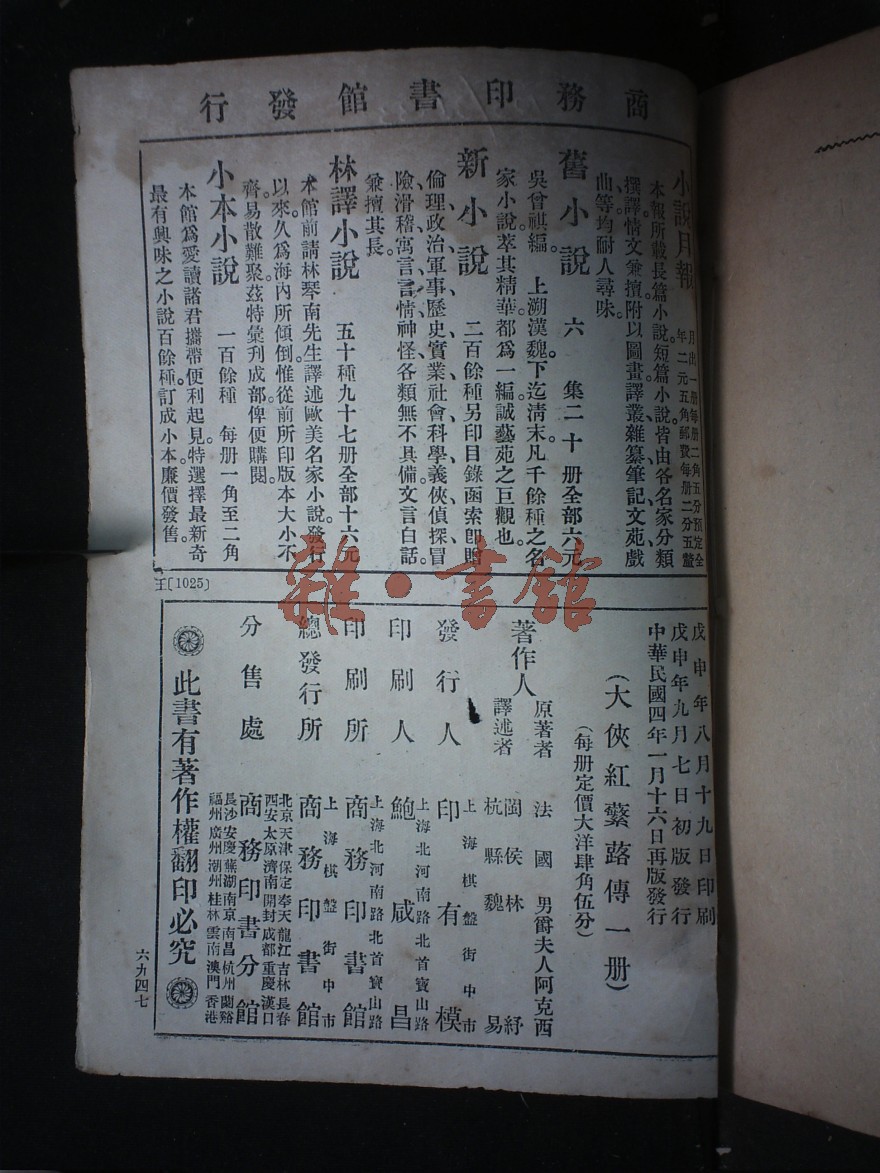 商務印書館發行
小說月報
月出一册每册二角五分預定全
年二元五角郵費每册二分五釐
本報所載長篇小說短篇小說皆由各名家分類
撰譯情文兼擅附以圖畫譯叢雜纂筆記文苑戲
曲等均耐人尋味
舊小說 六集二十册全部六元
吳曾祺編 上溯漢魏下迄清末凡千餘種之名
家小說萃其精華都爲一編誠藝苑之巨觀也
新小說 二百餘種另印目錄函索卽贈
倫理政治軍事歷史實業社會科學義俠偵探冒
險滑稽寓言言情神怪各類無不具備文言白話
兼擅其長
林譯小說 五十種九十七册全部十六元
本館前請林琴南先生譯述歐美名家小說發行
以來久爲海內所傾倒惟從前所印版本大小不
齊易散難聚茲特彙刋成部俾便購閱
小本小說 一百餘種 每册一角至二角
本館爲愛讀諸君攜帶便利起見特選擇最新奇
最有興味之小說百餘種訂成小本廉價發售
王〔1025〕
戊申年八月十九日印刷
戊申年九月七日初版發行
中華民國四年一月十六日再版發行
（大俠紅蘩蕗傳一册）
（每册定價大洋肆角伍分）
著作人
原著者 法國男爵夫人阿克西
譯述者 閩侯林紓
杭縣魏易
發行人 上海棋盤街中市
印有模
印刷人 上海北河南路北首寶山路
鮑咸昌
印刷所 上海北河南路北首寶山路
商務印書館
總發行所 上海棋盤街中市
商務印書館
分售處 北京天津保定奉天龍江吉林長春
西安太原濟南開封成都重慶漢口
商務印書分館
長沙安慶蕪湖南京南昌杭州蘭谿
福州廣州潮州桂林雲南澳門香港
此書有著作權翻印必究
六九四七
雜·書館